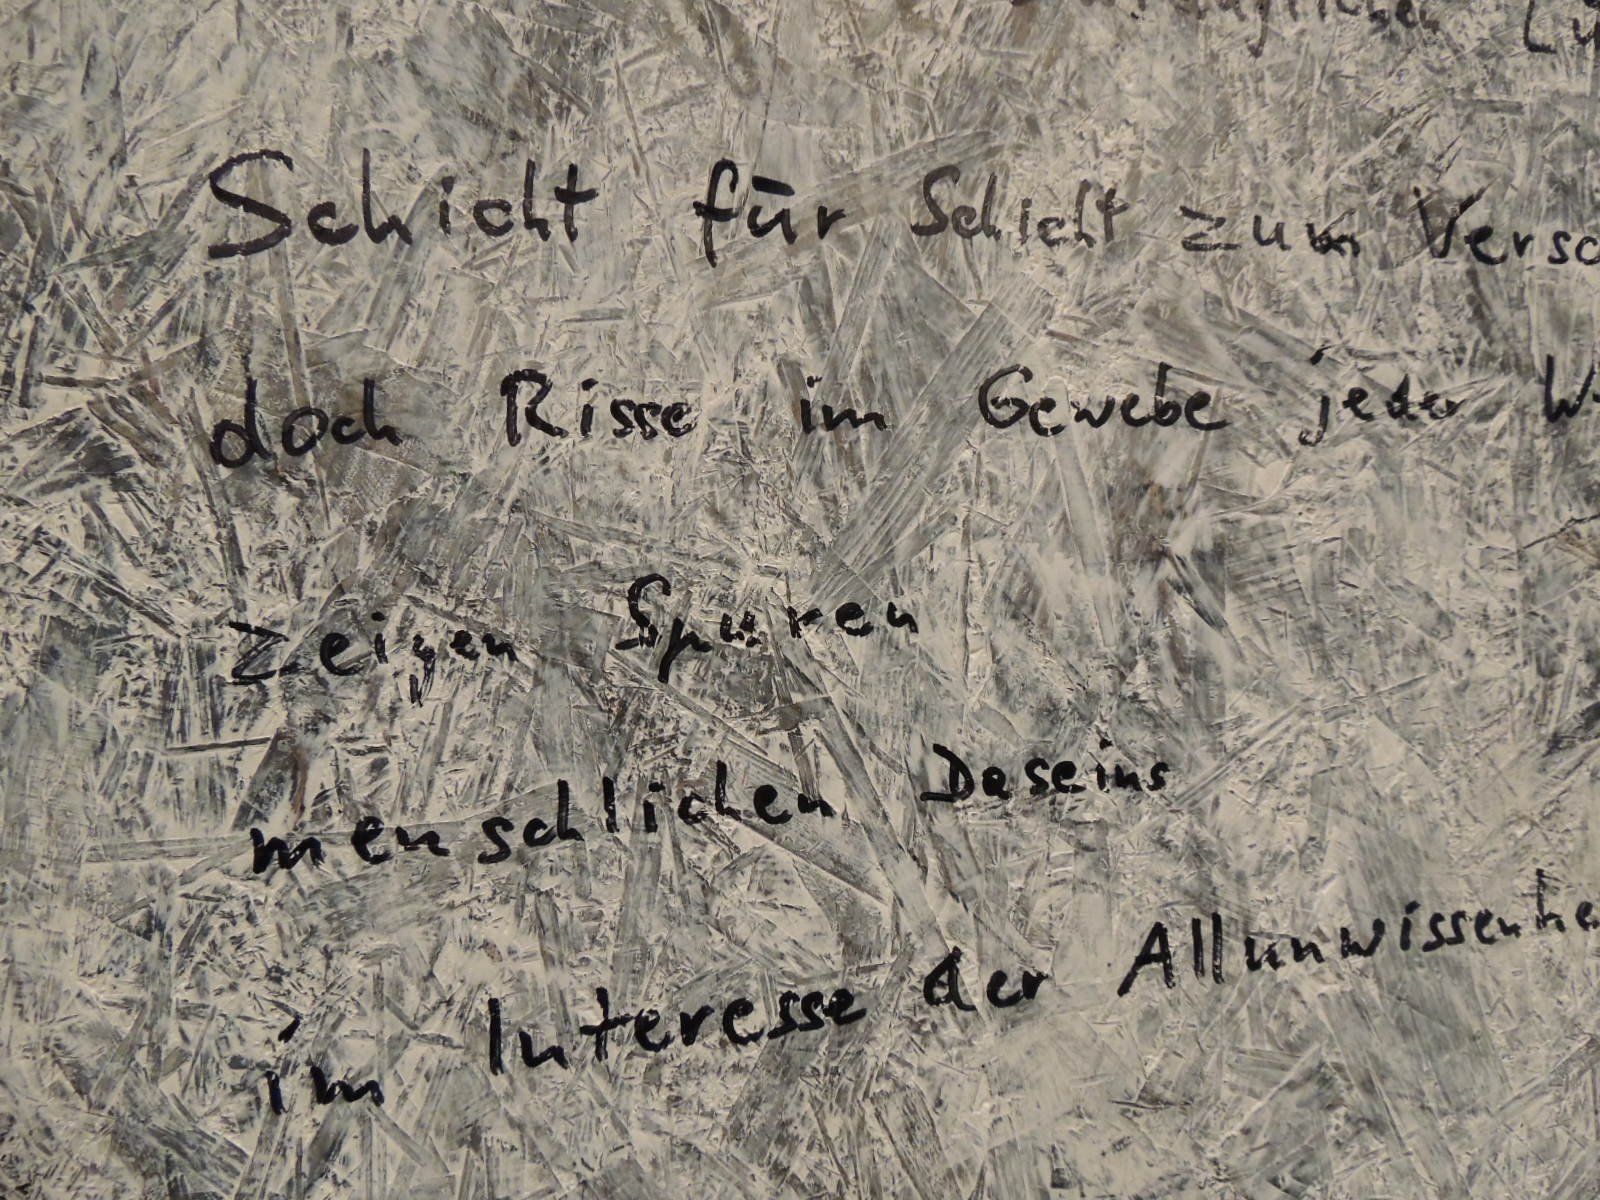 Schicht für Schicht zum Versc
doch Risse im Gewebe jeder W
zeigen Spuren
menschlichen Daseins
im Interesse der Allunwissenhe